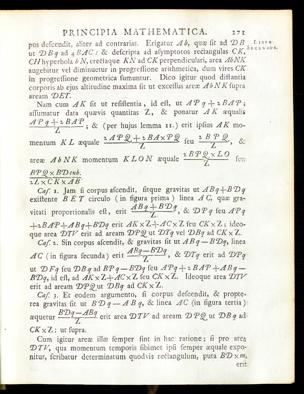 PRINCIPIA MATHEMATICA. 271
pus descendit, aliter ad contrarias. Erigatur Ab, quæ sit ad DB LIBER
ut DBq ad 4BAC: & descripta ad asymptotos rectangulas CK, SECUNDUS.
CH hyperbola bN, erectaque KN ad CK perpendiculari, area AbNK
augebitur vel diminuetur in progressione arithmetica, dum vires CK
in progressione geometrica sumuntur. Dico igitur quod distantia
corporis ab ejus altitudine maxima sit ut excessus areæ AbNK supra
aream DET.
Nam cum AK sit ut resistentia, id est, ut APq + 2BAP;
assumatur data quævis quantitas Z, & ponatur AK æqualis
APq + 2BAP / Z; & (per hujus lemma II.) erit ipsius AK mo-
mentum KL æquale 2APQ + 2BA×PQ / Z seu 2BPQ / Z, &
areæ AbNK momentum KLON æquale 2BPQ×LO / Z seu
BPQ×BD cub. / 2Z×CK×AB
Cas. 1. Jam si corpus ascendit, sitque gravitas ut ABq+BDq
existente BET circulo (in figura prima) linea AC, quæ gra-
vitati proportionalis est, erit ABq+BDq / Z, & DPq seu APq
+2BAP+ABq+BDq erit AK×Z+AC×Z seu CK×Z; ideo-
que area DTV erit ad aream DPQ ut DTq vel DBq ad CK×Z.
Cas. 2. Sin corpus ascendit, & gravitas sit ut ABq−BDq, linea
AC (in figura secunda) erit ABq−BDq / Z, & DTq erit ad DPq
ut DFq seu DBq ad BPq−BDq seu APq+2BAP+ABq−
BDq, id est, ad AK×Z+AC×Z seu CK×Z. Ideoque area DTV
erit ad aream DPQ ut DBq ad CK×Z.
Cas. 3. Et eodem argumento, si corpus descendit, & propte-
rea gravitas sit ut BDq−ABq, & linea AC (in figura tertia)
æquetur BDq−ABq / Z erit area DTV ad aream DPQ ut DBq ad
CK×Z: ut supra.
Cum igitur areæ illæ semper sint in hac ratione; si pro area
DTV, qua momentum temporis sibimet ipsi semper æquale expo-
nitur, scribatur determinatum quodvis rectangulum, puta BD×m,
erit